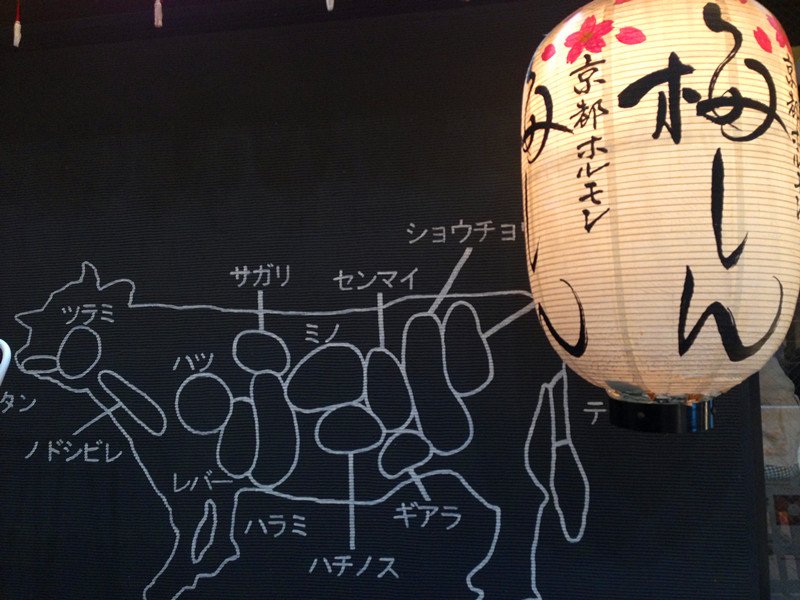 梅しん
京都ホルモン
ショウチョウ
サガリ
センマイ
ツラミ
ミノ
ハツ
タン
ノドシビレ
レバー
ハラミ
ギアラ
ハチノス
テ